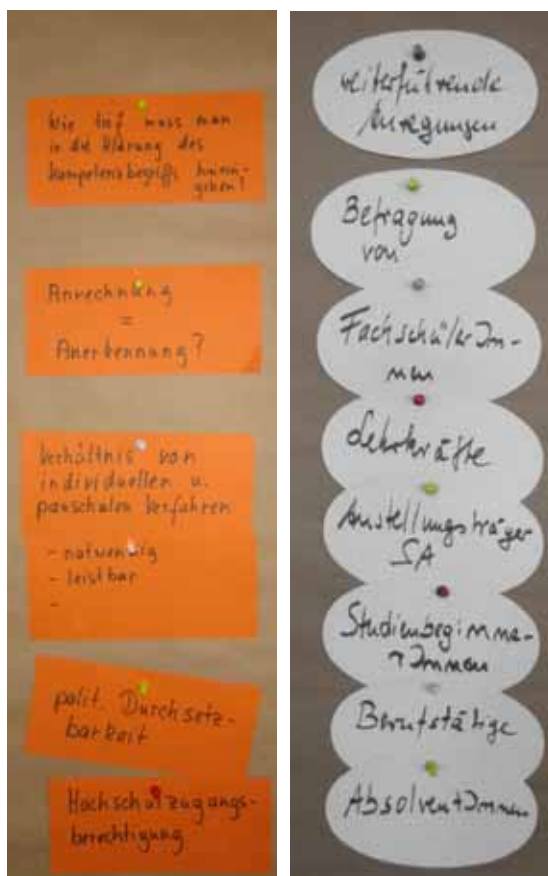 Wie tief muss man
in die Klärung des
Kompetenzbegriffs hinein-
gehen?
Anrechnung
=
Anerkennung?
Verhältnis von
individuellen u.
pauschalen Verfahren
- notwendig
- leistbar
-
polit. Durchsetz-
barkeit
Hochschulzugangs-
berechtigung
weiterführende
Anregungen
Befragung
von
FachschülerInn-
nen
Lehrkräfte
Anstellungsträger
SA
Studienbeginne-
rInnen
Berufstätige
AbsolventInnen